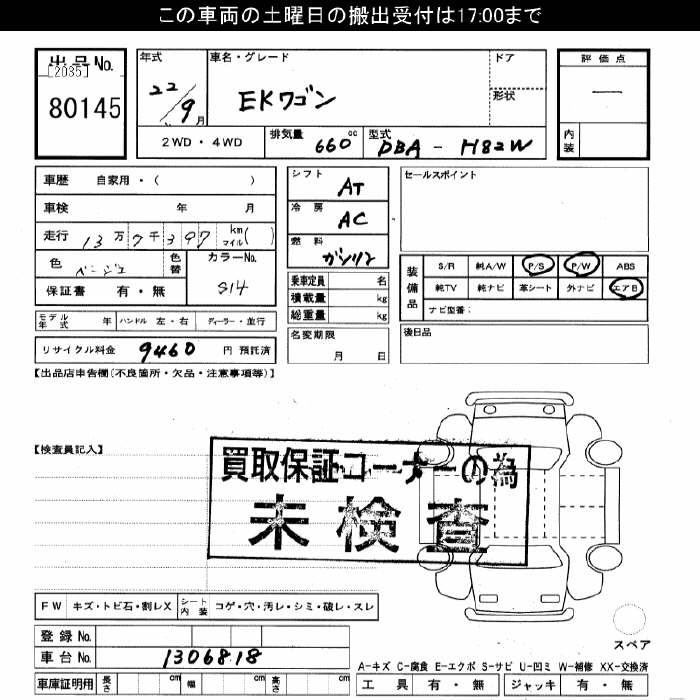 この車両の土曜日の搬出受付は17:00まで
出品No.
[2035]
80145
年式 車名・グレード ドア
22/9月 EKワゴン 形状
2WD・4WD 排気量 660cc 型式 DBA - H82W
評価点
―
内装
車歴 自家用・( )
車検 年 月
走行 13万7千397 km マイル( )
色 ベージュ 色替 カラーNo. S14
保証書 有・無
モデル年式 年 ハンドル 左・右 ディーラー・並行
リサイクル料金 9460 円 預託済
シフト AT
冷房 AC
燃料 ガソリン
乗車定員 名
積載量 kg
総重量 kg
名変期限
月 日
セールスポイント
装備品 S/R 純A/W P/S P/W ABS
純TV 純ナビ 革シート 外ナビ エアB
ナビ型番:
後日品
【出品店申告欄(不良箇所・欠品・注意事項等)】
【検査員記入】
買取保証コーナーの為
未検査
FW キズ・トビ石・割レX シート内装 コゲ・穴・汚レ・シミ・破レ・スレ
スペア
登録No.
車台No. 1306818
車庫証明用 長さ cm 幅 cm 高さ cm
A-キズ C-腐食 E-エクボ S-サビ U-凹ミ W-補修 XX-交換済
工具 有・無 ジャッキ 有・無